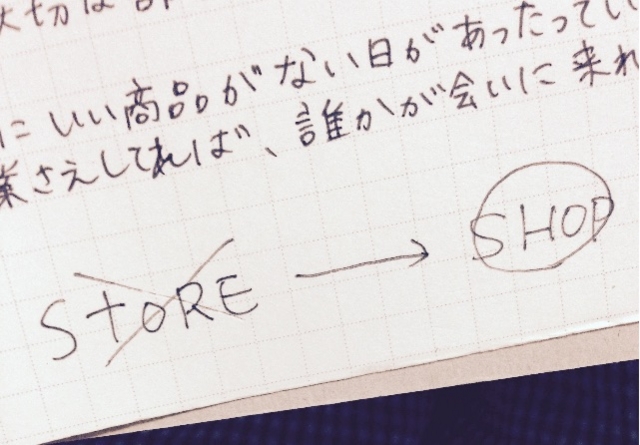 大切な
にいい商品がない日があったってい
業さえしてれば、誰かが会いに来れ
STORE → SHOP